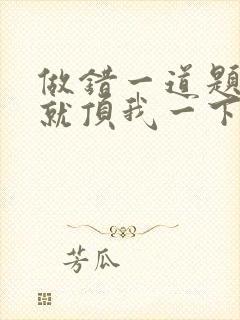 做错一道题
就頂我一下
芳瓜